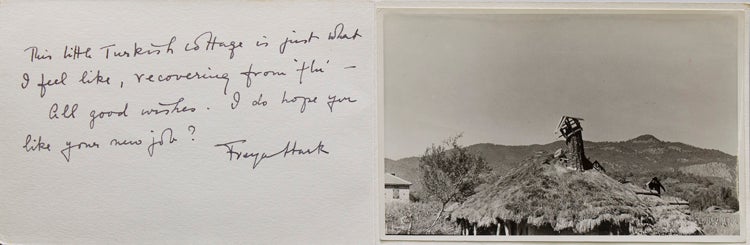 This little Turkish cottage is just what
I feel like, recovering from 'flu' –
All good wishes. I do hope you
like your new job?
Freya Stark